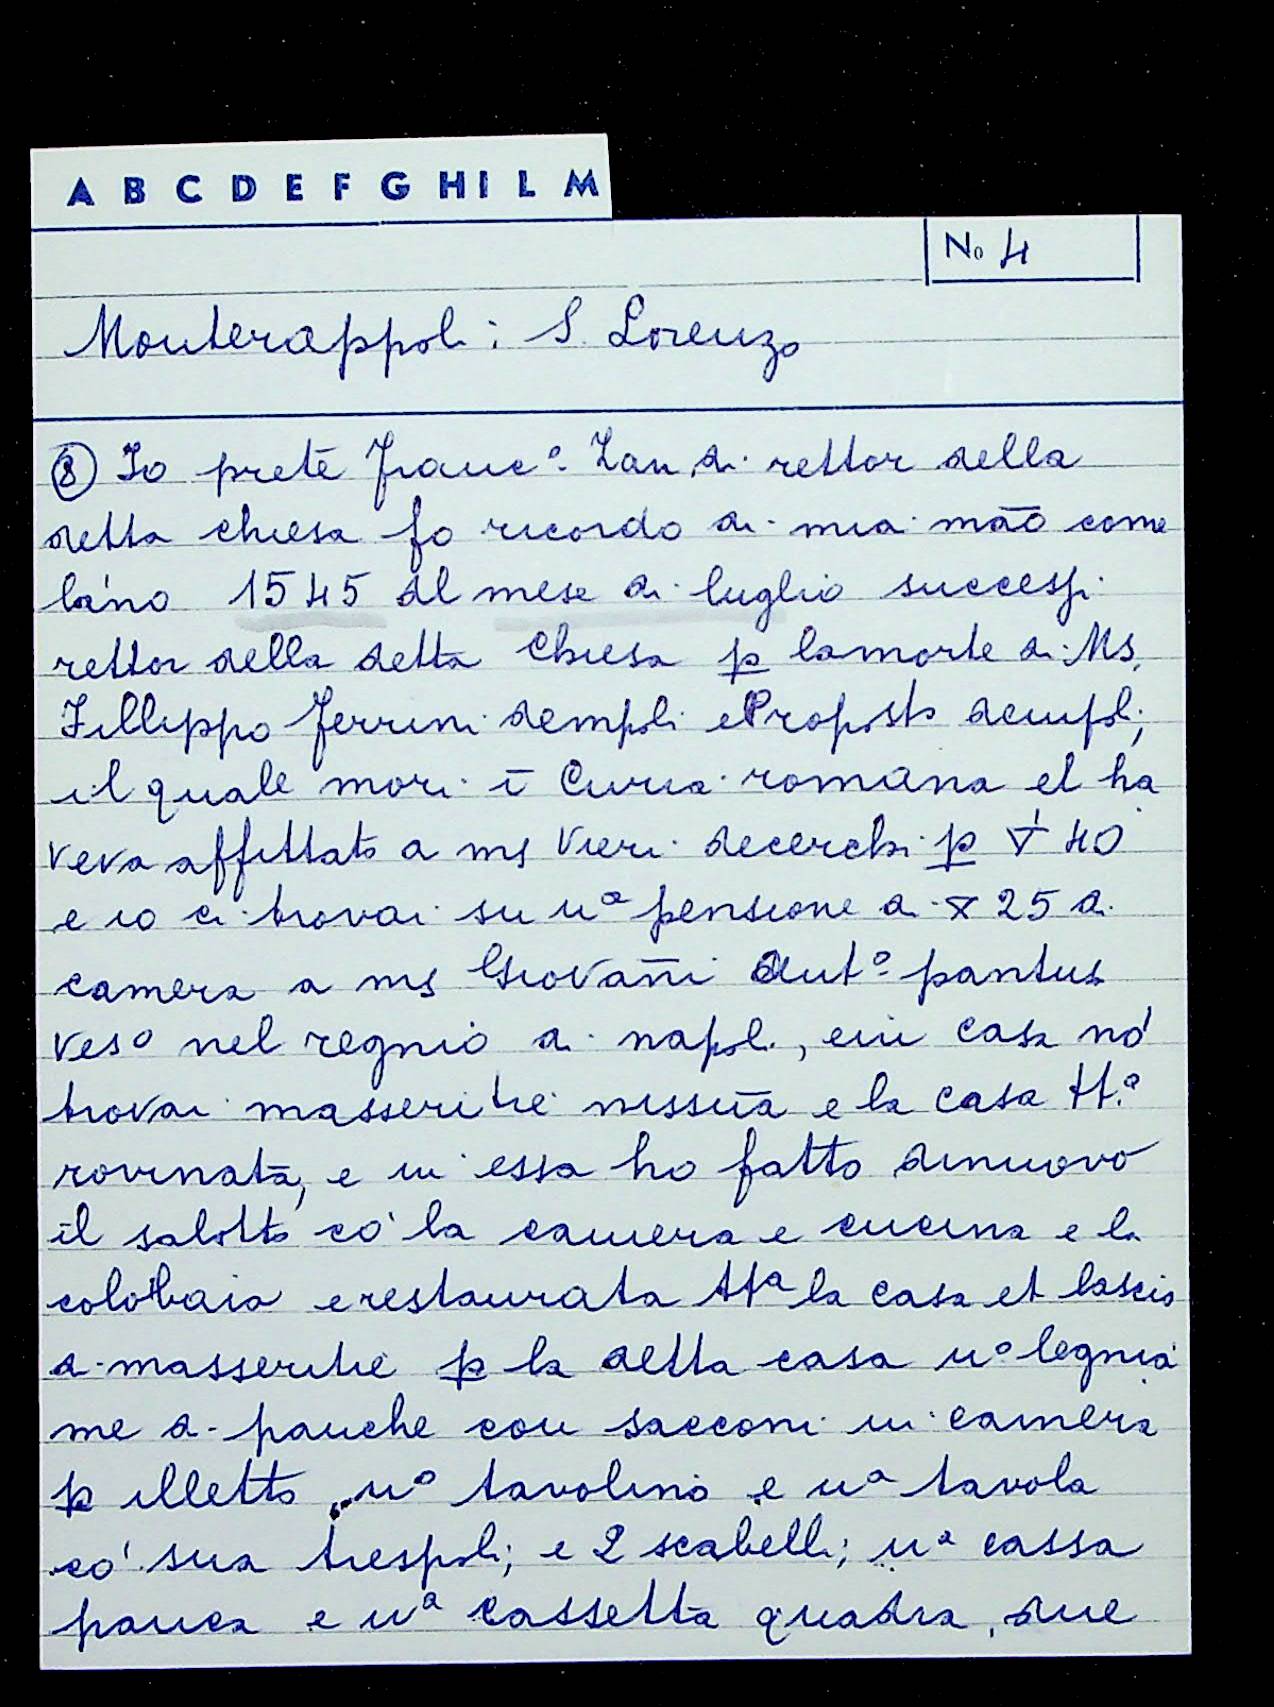 A B C D E F G H I L M
No 4
Monterappoli: S. Lorenzo
⑧ Io prete Franc° Zan di rettor della
detta chiesa fo ricordo di mia māo come
la'no 1545 al mese di luglio successi
rettor della detta Chiesa p lamorte di Ms.
Fillippo ferrini dempoli e Proposto dempoli;
il quale mori ī Curia romana et ha
veva affittato a ms Vieri decerchi p 40
e io ci trovai su uª pensione di 25 di
camera a ms Giovañi Ant° pantus
veso nel regnio di napoli, e in casa no'
trovai masseritie nissūa e la casa tt.ª
rovinata, e in essa ho fatto dinuovo
il salotto co' la camera e cucina e la
colobaia e restaurata ttª la casa et lascio
di masseritie p la detta casa u° legnia
me di panche con sacconi in camera
p illetto u° tavolino e uª tavola
co' sua trespoli; e 2 scabelli; uª cassa
panca e uª cassetta quadra, due